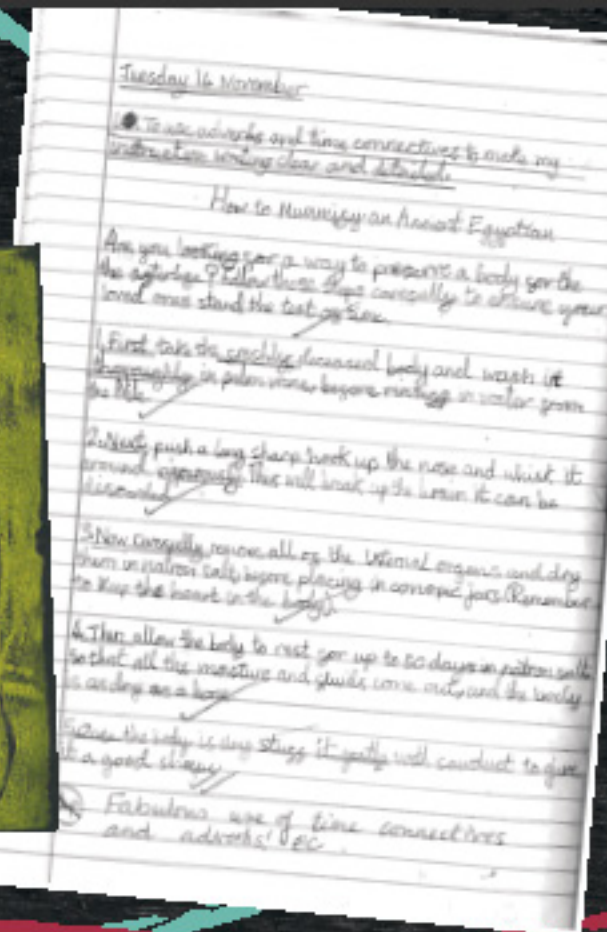 Tuesday 16 November
To use adverbs and time connectives to make my
instruction writing clear and detailed.
How to Mummify an Ancient Egyptian
Are you looking for a way to preserve a body for the
the afterlife? Follow these steps carefully to ensure your
loved ones stand the test of time.
1. First, take the deceased body and wash it
thoroughly in palm wine, before rinsing in water from
the Nile.
2. Next, push a long sharp hook up the nose and whisk it
around This will break up the brain it can be
discarded.
3. Now carefully remove all of the internal organs and dry
them in natron salt, before placing in canopic jars. (Remember
to keep the heart in the body).
4. Then allow the body to rest for up to 50 days in natron salt
so that all the moisture and fluids come out, and the body
is as dry as a bone.
5. the body is dry stuff it gently with to give
it a good shape.
Fabulous use of time connectives
and adverbs!